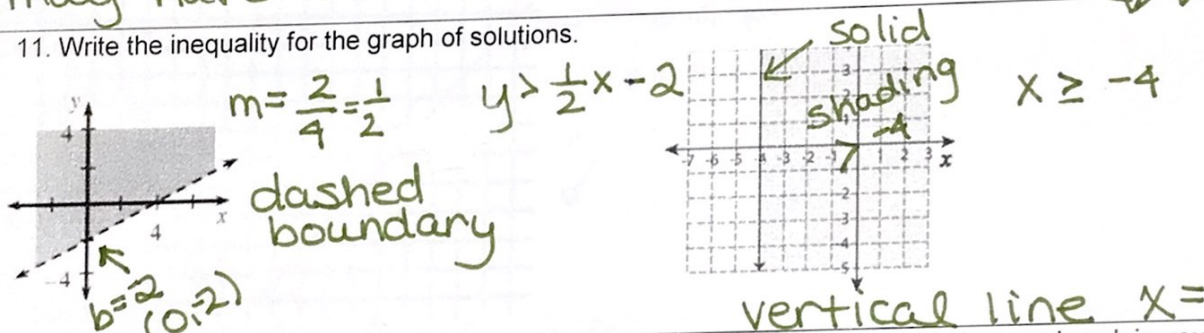 11. Write the inequality for the graph of solutions.
m = 2/4 = 1/2
y > 1/2 x - 2
y
4
4
x
-4
dashed
boundary
b=-2
(0,-2)
solid
shading
> -4
x ≥ -4
3
-7 -6 -5 -4 -3 -2 -1 1 2 3 x
-2
-3
-4
-5
vertical line x=